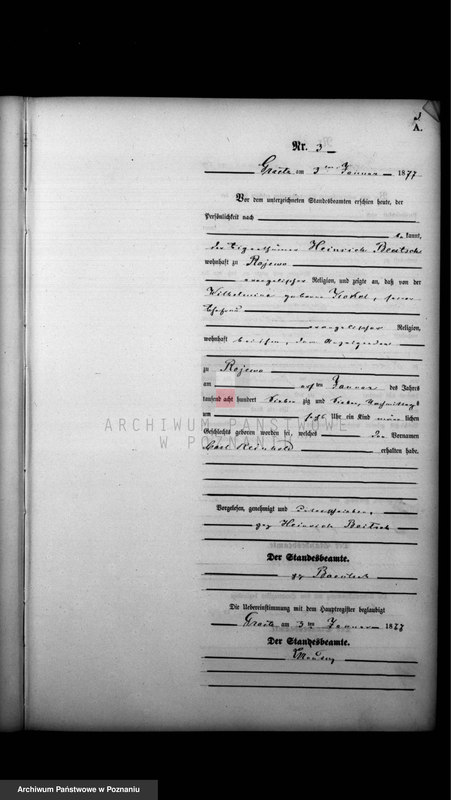 3
A.
Nr. 3
Graetz am 3 ten Januar 1877
Vor dem unterzeichneten Standesbeamten erschien heute, der
Persönlichkeit nach
kannt,
der Eigenthümer Heinrich Beitsch
wohnhaft zu Rojewo
evangelischer Religion, und zeigte an, daß von der
Wilhelmine geborene seiner
Ehefrau
evangelischer Religion,
wohnhaft bei ihm, dem Anzeigenden
zu Rojewo
am ersten Januar des Jahres
tausend acht hundert sieben zig und sieben, Nachmittags
um sechs Uhr ein Kind männ lichen
Geschlechts geboren worden sei, welches die Vornamen
Carl Reinhold erhalten habe.
Vorgelesen, genehmigt und unterschrieben,
gez Heinrich Beitsch
Der Standesbeamte.
gez
Die Uebereinstimmung mit dem Hauptregister beglaubigt
Graetz am 3 ten Januar 1877
Der Standesbeamte.
ARCHIWUM PAŃSTWOWE
W POZNANIU
Archiwum Państwowe w Poznaniu